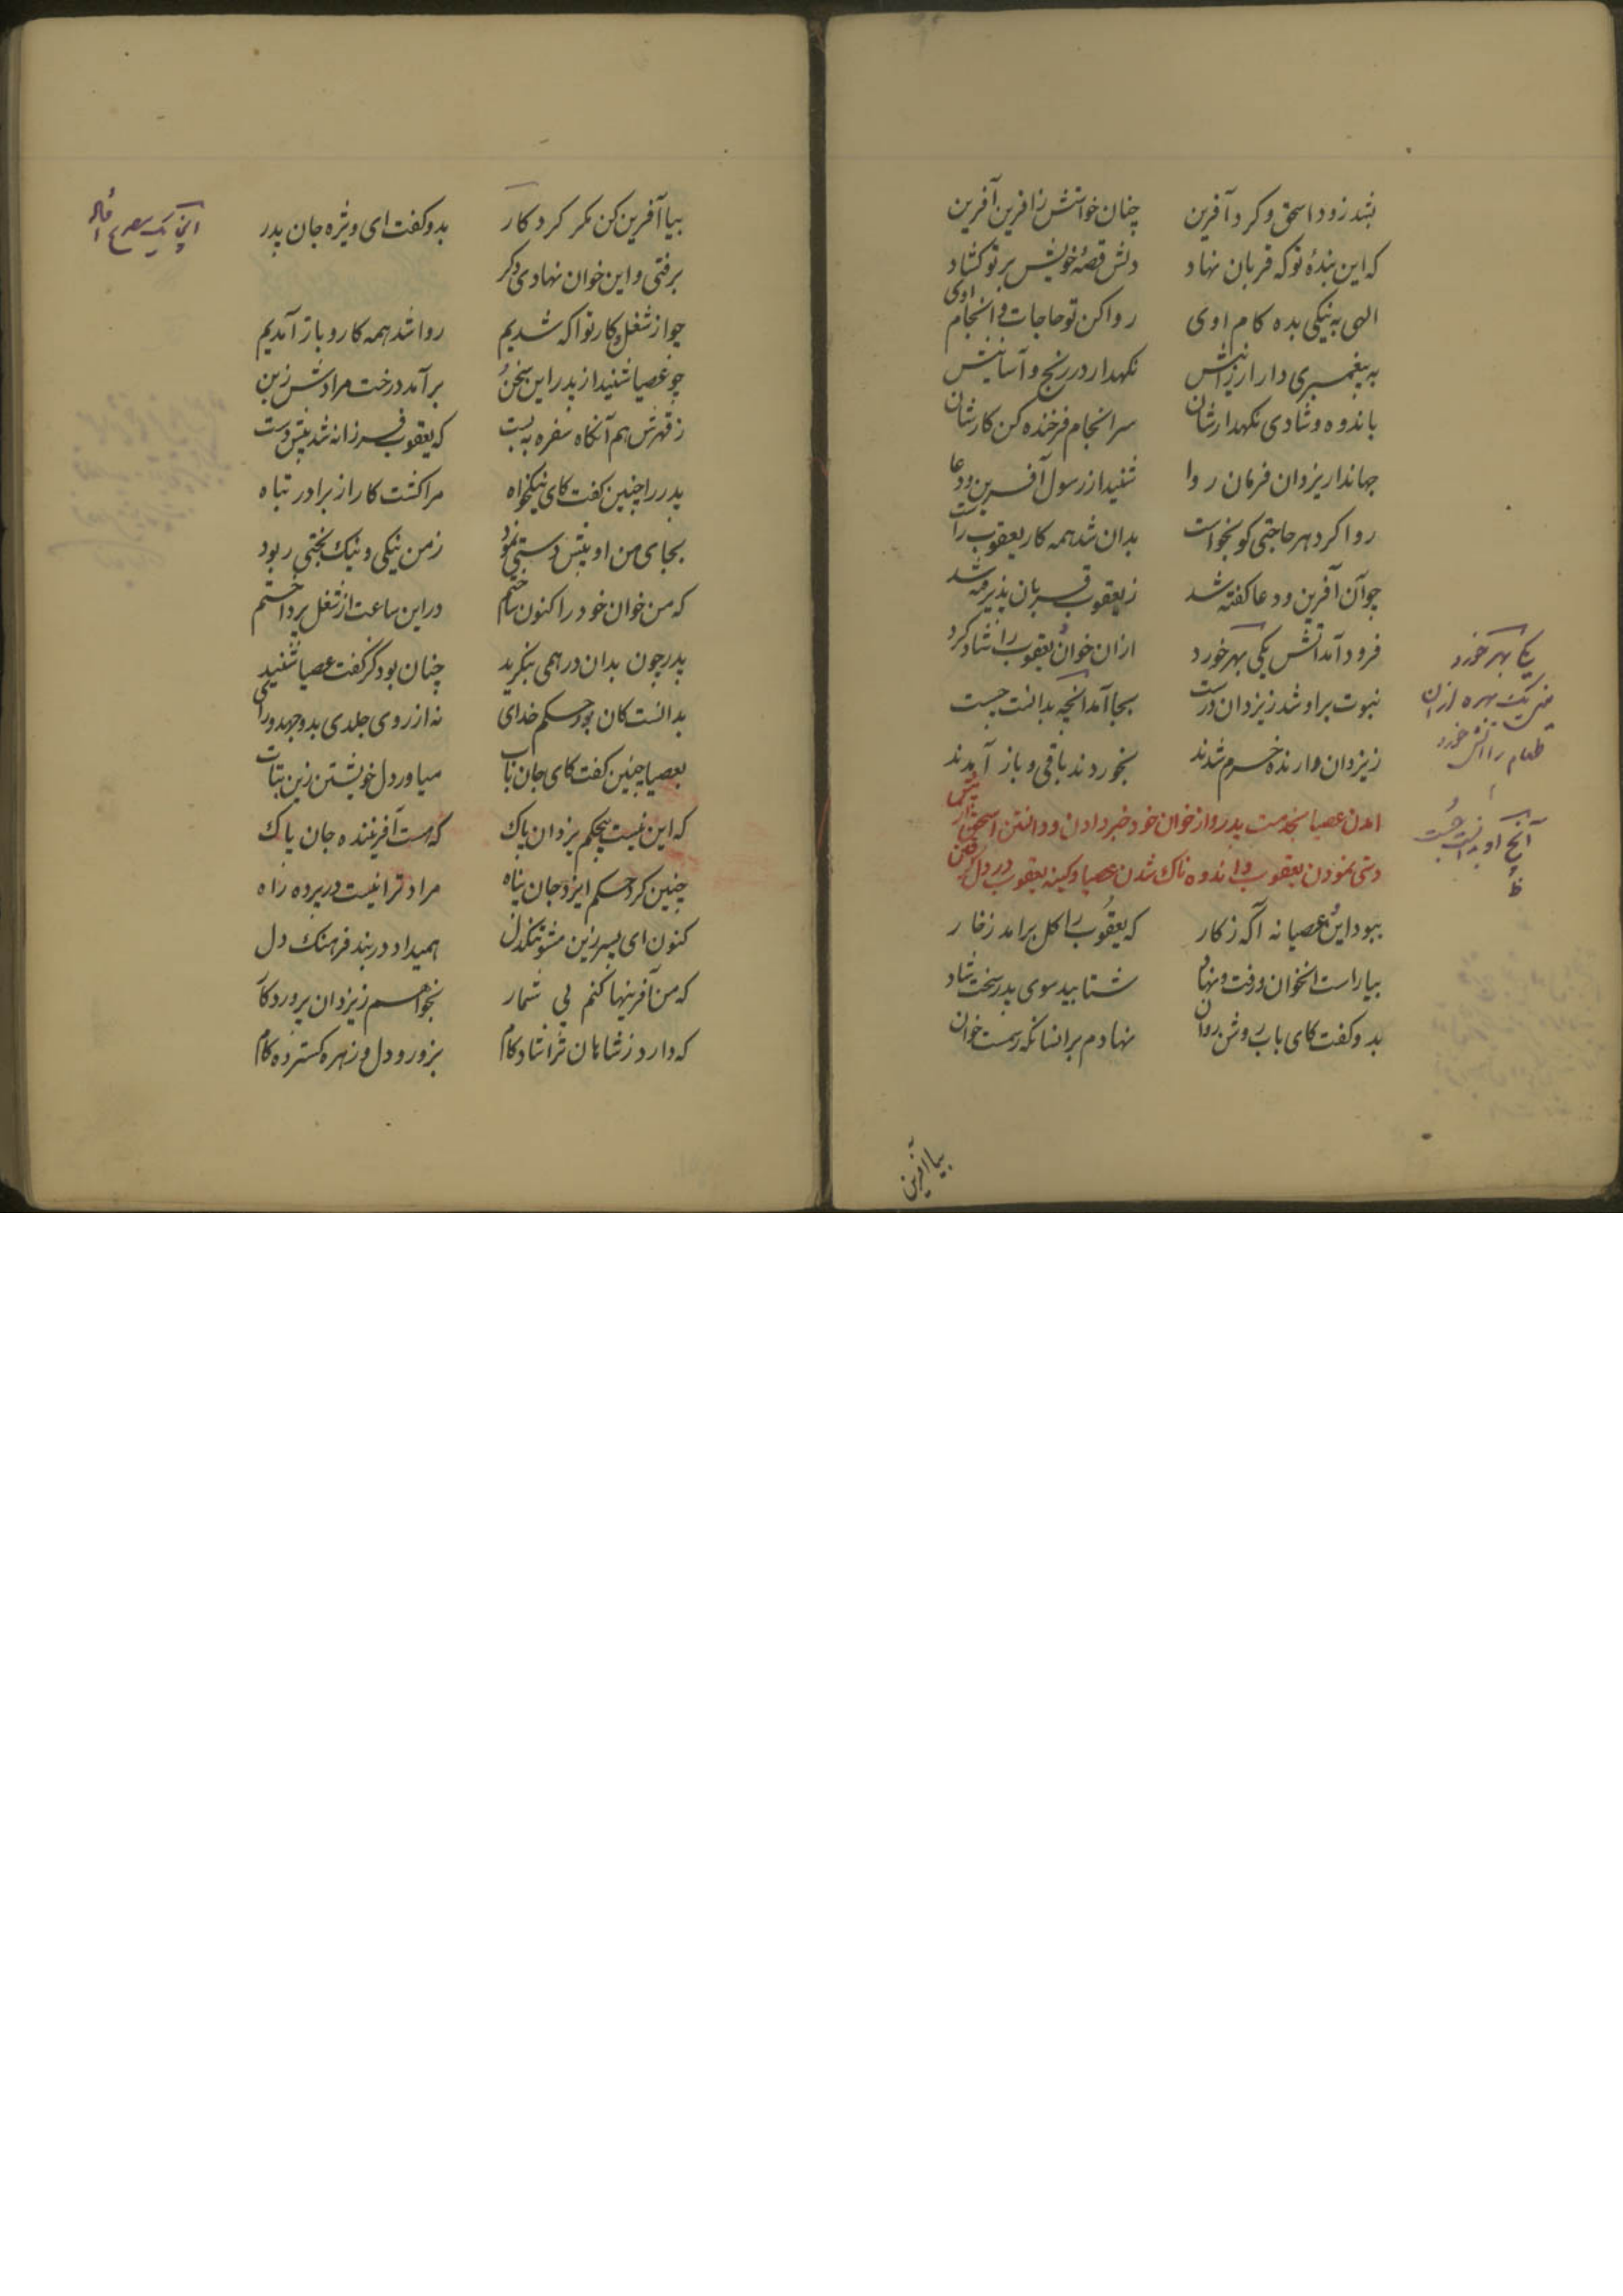 بشد زود اسحق و کرد آفرین چنان خواستش زافرین آفرین
که این بندهٔ تو که قربان نهاد دلش قصهٔ خویش بر تو کشاد
الهی به نیکی بده کام اوی روا کن تو حاجات و انجام اوی
به پیغمبری دار ارزانیش نکهدار در رنج و آسانیش
باندوه و شادی نکهدارشان سرانجام فرخنده کن کارشان
جهاندار یزدان فرمان روا شنید از رسول آفرین و دعا
روا کرد هر حاجتی کو بخواست بدان شد همه کار یعقوب راست
چو آن آفرین و دعا کفته شد ز یعقوب قربان پذیرفته شد
فرود آمد آتش یکی بهر خورد ازان خوان یعقوب را شاد کرد
نبوت بر او شد ز یزدان درست بجا آمد انچه بدانست جست
ز یزدان دارنده خرم شدند بخوردند باقی و باز آمدند
امدن عصیا بخدمت پدر و از خوان خود خبر دادن و دانستن اسحق از پیش
دستی نمودن یعقوب و اندوه ناک شدن عصیا و کینه یعقوب در دل کرفتن
ببود این عصیا نه آکه ز کار که یعقوب را کل برامد ز خار
بیاراست انخوان و رفت و نهاد شتابید سوی پدر سخت شاد
بدو کفت کای باب روشن روان نهادم بر انسانکه رسمست خوان
بیا آفرین
یکی بهر خورد
یعنی یک بهره ازان
طعام را آتش خورد
آنچ او بدانست جست
ظ
بیا آفرین کن مکر کردکار بدو کفت ای ویژه جان پدر
برفتی و این خوان نهادی دکر
چو از شغل و کار تو اکه شدیم روا شد همه کار و باز آمدیم
چو عصیا شنید از پدر این سخن برآمد درخت مرادش ز بن
ز قهرش هم آنکاه سفره به بست که یعقوب فرزانه شد پیش دست
پدر را چنین کفت کای نیکخواه مرا کشت کار از برادر تباه
بجای من او پیش دستی نمود ز من نیکی و نیک بختی ربود
که من خوان خود را کنون ساختم در این ساعت از شغل پرداختم
پدر چون بدان در همی بنکرید چنان بود کز کفت عصیا شنید
بدانست کان بود حکم خدای نه از روی جلدی بد و جهد و رای
بعصیا چنین کفت کای جان باب میاور دل خویشتن زین بتاب
که این نیست جز حکم یزدان پاک که هست آفریننده جان پاک
چنین کرد حکم ایزد جان پناه مراد ترا نیست در پرده راه
کنون ای پسر زین مشو تنکدل همیدار در بند فرهنک دل
که من آفرینها کنم بی شمار بخواهم ز یزدان پروردکار
که دارد ز شاهان ترا شادکام بزور و دل و زهره کسترده کام